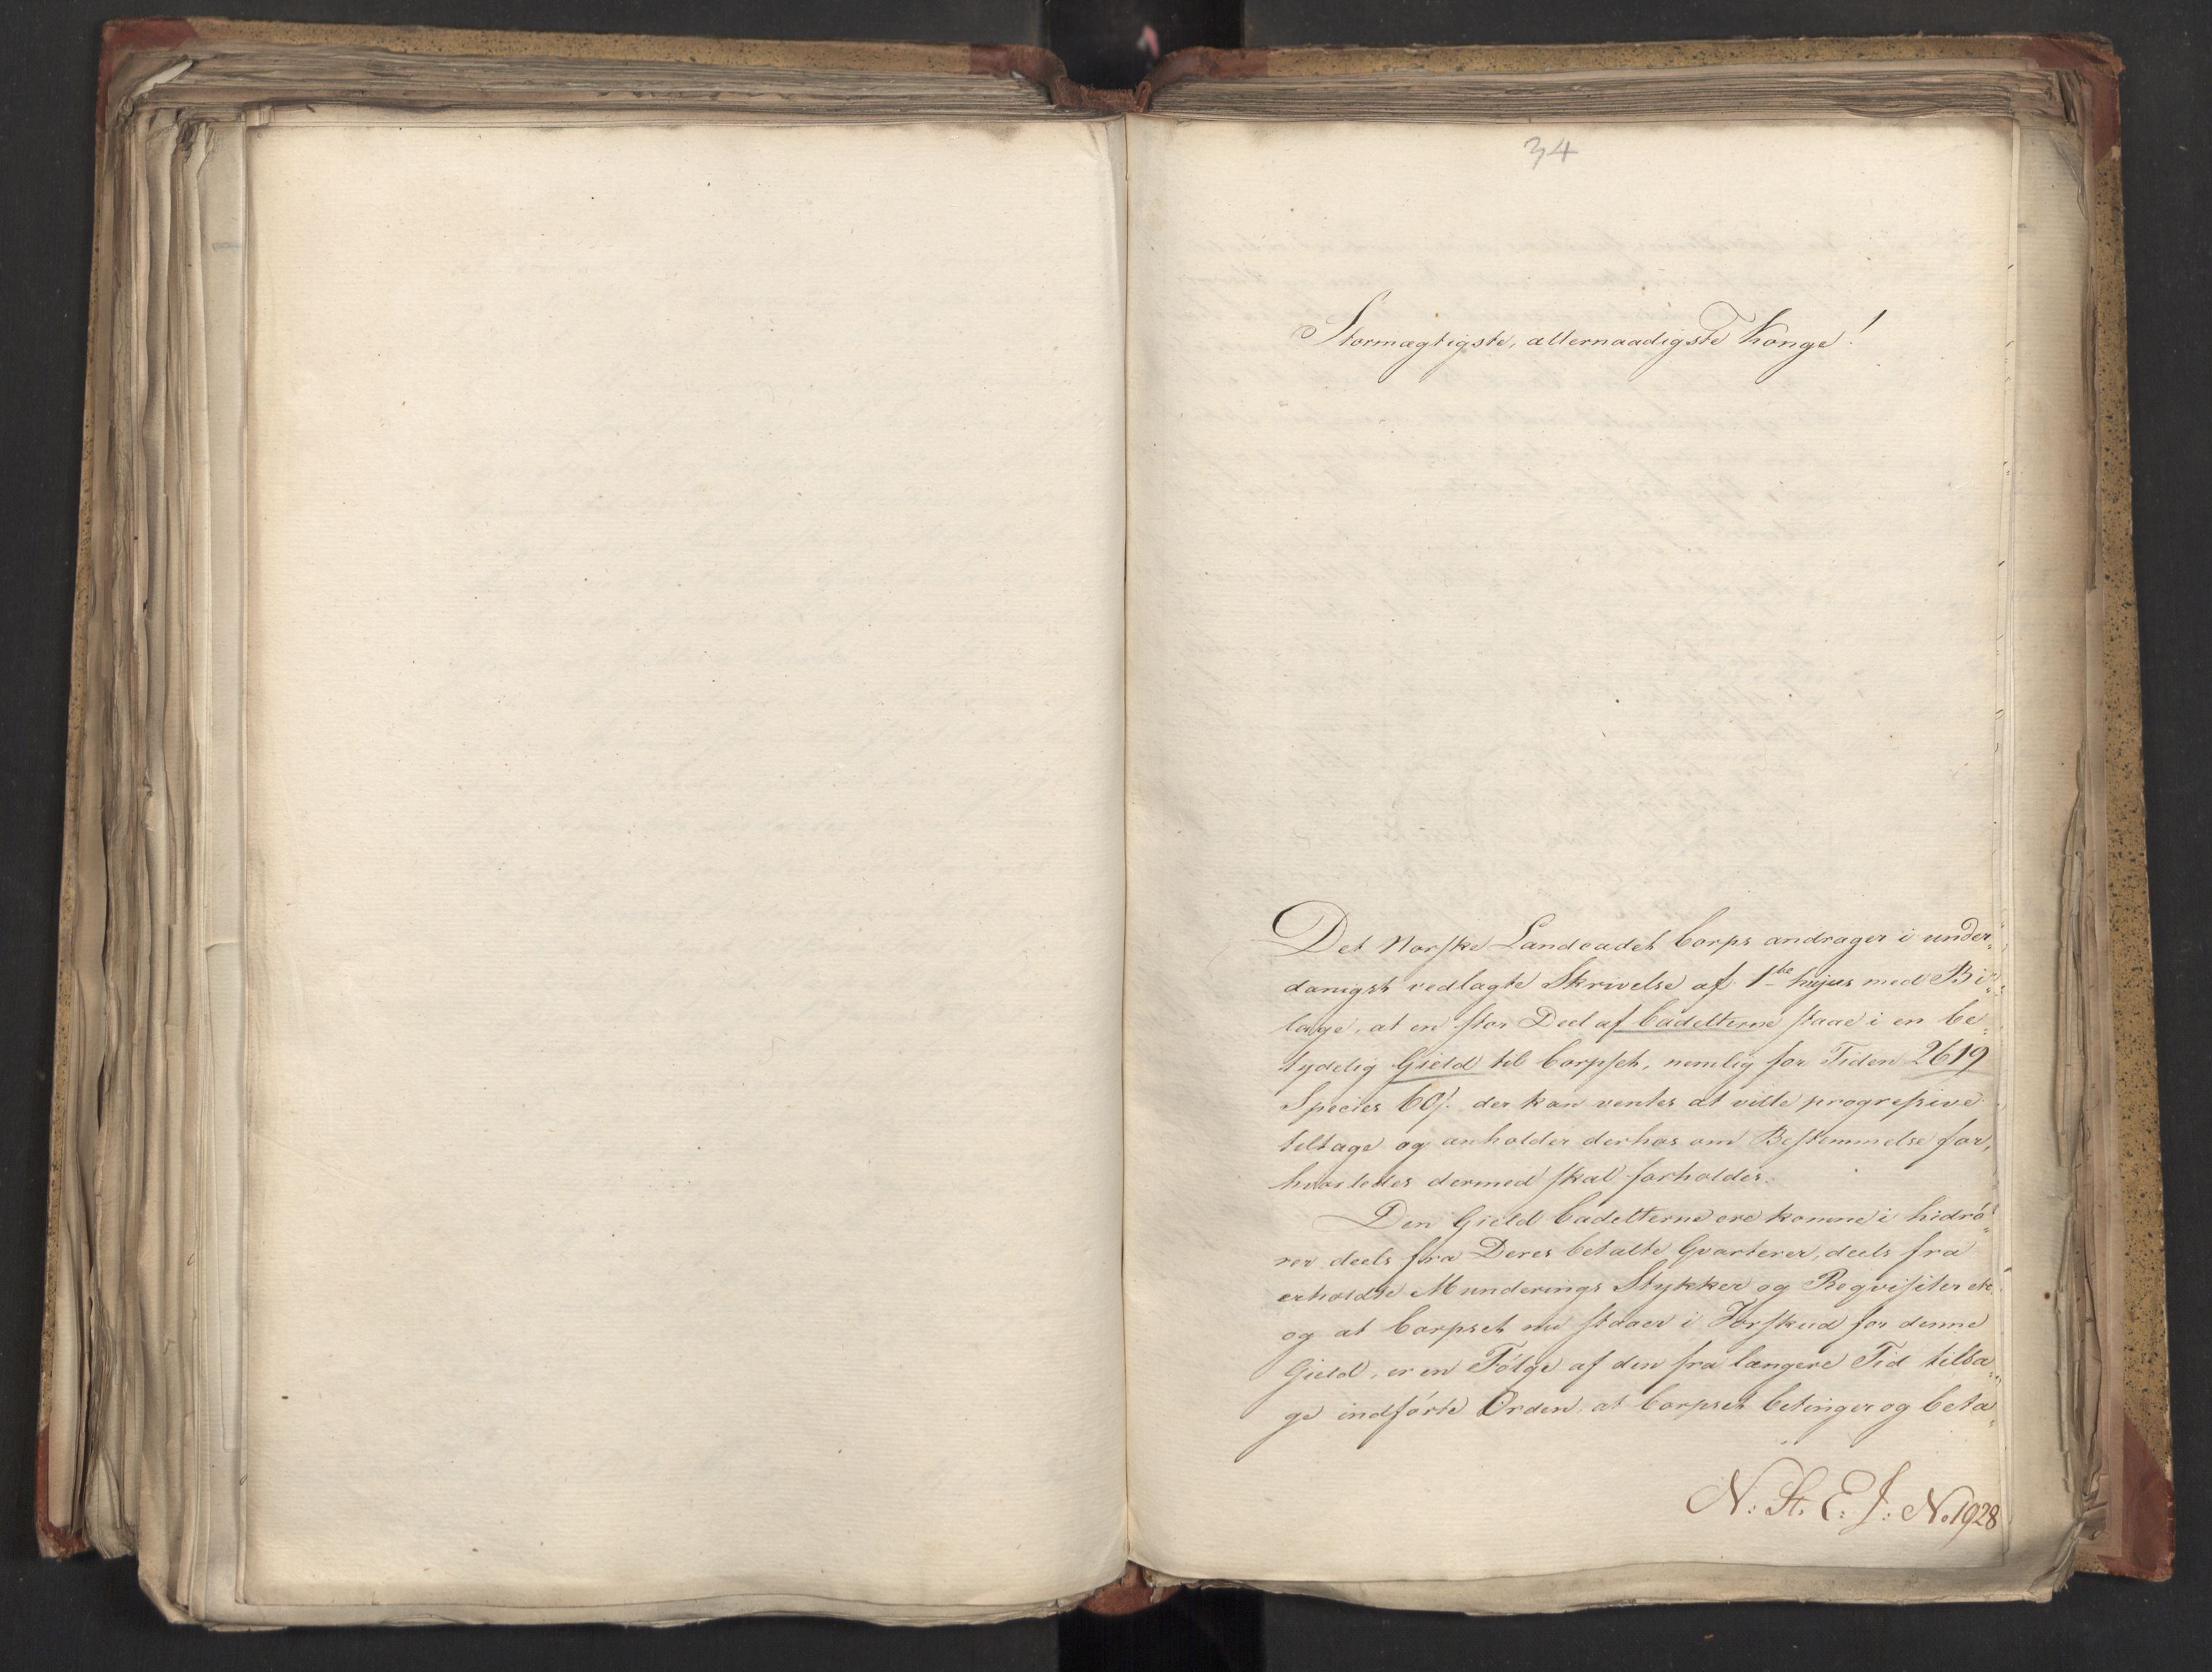 34
Stormægtigste, allernaadigste Konge!
Det Norske Landcadet Corps andrager i under„
danigst vedlagte Skrivelse af 1ste hujus med Bi„
lage, at en stor Deel af Cadetterne staae i en be„
tydelig Gield til Corpset, nemlig for Tiden 2619
Species 60/. der kan ventes at ville progressive
tiltage og anholder derhos om Bestemmelse for,
hvorledes dermed skal forholdes.
Den Gield Cadetterne ere komne i hidrö„
rer deels fra Deres betalte Qvarterer, deels fra
erholdte Munderings Stykker og Reqvisiter etc.
og at Corpset nu staaer i Forskud for denne
Gield, er en Fölge af den fra længere Tid tilba„
ge indförte Orden, at Corpset betinger og beta„
N: St. E: J: No 1928